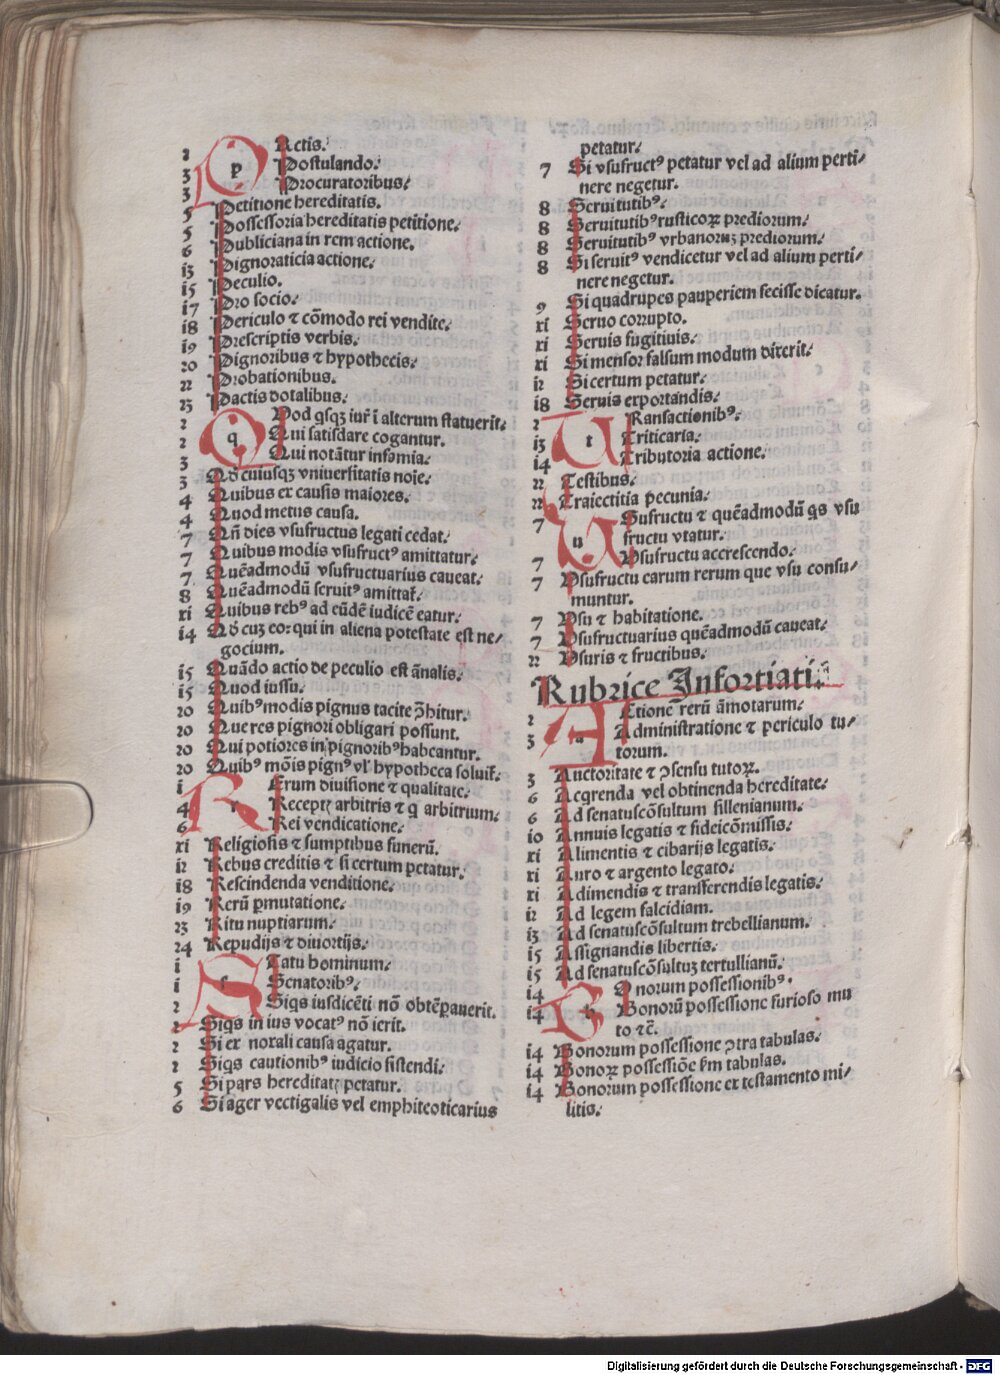 2 Actis.
3 p Postulando.
3 Procuratoribus.
5 Petitione hereditatis.
5 Possessoria hereditatis petitione.
6 Publiciana in rem actione.
i3 Pignoraticia actione.
i5 Peculio.
i7 Pro socio.
i8 Periculo ⁊ cōmodo rei vendite.
i9 Prescriptis verbis.
20 Pignoribus ⁊ hypothecis.
22 Probationibus.
23 Pactis dotalibus.
2 Quod qsqꝫ iur̄ ī alterum statuerit.
2 q Qui satisdare cogantur.
3 Qui notātur infamia.
3 Qđ cuiusqꝫ vniuersitatis noīe.
4 Quibus ex causis maiores.
4 Quod metus causa.
7 Qn̄ dies vsufructus legati cedat.
7 Quibus modis vsufructꝰ amittatur.
7 Quēadmodū vsufructuarius caueat.
8 Quēadmodū seruitꝰ amittat̄.
xi Quibus rebꝰ ad eūdē iudicē eatur.
i4 Qđ cuꝫ eo: qui in aliena potestate est ne⸗
gocium.
i5 Quādo actio de peculio est ānalis.
i5 Quod iussu.
20 Quibꝰ modis pignus tacite ꝯhitur.
20 Que res pignori obligari possunt.
20 Qui potiores in pignoribꝰ habeantur.
20 Quibꝰ mōis pignꝰ vl̓ hypotheca soluit̄.
i Rerum diuisione ⁊ qualitate.
4 r Receptꝭ arbitris ⁊ q̄ arbitrium.
6 Rei vendicatione.
xi Religiosis ⁊ sumptibus funerū.
i2 Rebus creditis ⁊ si certum petatur.
i8 Rescindenda venditione.
i9 Rerū ꝑmutatione.
23 Ritu nuptiarum.
24 Repudijs ⁊ diuortijs.
i Statu hominum.
i s Senatoribꝰ.
2 Siqs iusdicēti nō obtēpauerit.
2 Siqs in ius vocatꝰ nō ierit.
2 Si ex noxali causa agatur.
2 Siqs cautionibꝰ iudicio sistendi.
5 Si pars hereditatꝭ petatur.
6 Si ager vectigalis vel emphiteoticarius
petatur.
7 Si vsufructꝰ petatur vel ad alium perti⸗
nere negetur.
8 Seruitutibꝰ.
8 Seruitutibꝰ rusticoꝝ prediorum.
8 Seruitutibꝰ vrbanoruꝫ prediorum.
8 Si seruitꝰ vendicetur vel ad alium perti⸗
nere negetur.
9 Si quadrupes pauperiem fecisse dicatur.
xi Seruo corrupto.
xi Seruis fugitiuis.
xi Si mensor falsum modum dixerit.
i2 Si certum petatur.
i8 Seruis exportandis.
2 Transactionibꝰ.
i3 t Triticaria.
i4 Tributoria actione.
22 Testibus.
22 Traiectitia pecunia.
7 Vsufructu ⁊ quēadmodū qs vsu
u fructu vtatur.
7 Vsufructu accrescendo.
7 Vsufructu earum rerum que vsu consu⸗
muntur.
7 Vsu ⁊ habitatione.
7 Vsufructuarius quēadmodū caueat.
22 Vsuris ⁊ fructibus.
Rubrice Infortiati.
2 Actione rerū āmotarum.
3 a Administratione ⁊ periculo tu⸗
torum.
3 Auctoritate ⁊ ꝯsensu tutoꝝ.
6 Acqrenda vel obtinenda hereditate.
6 Ad senatuscōsultum sillenianum.
i0 Annuis legatis ⁊ fideicōmissis.
xi Alimentis ⁊ cibarijs legatis.
xi Auro ⁊ argento legato.
xi Adimendis ⁊ transferendis legatis.
i2 Ad legem falcidiam.
i3 Ad senatuscōsultum trebellianum.
i5 Assignandis libertis.
i5 Ad senatuscōsultuꝫ tertullianū.
i4 Bonorum possessionibꝰ.
i4 b Bonorū possessione furioso mu
to ⁊c̄.
i4 Bonorum possessione ꝯtra tabulas.
i4 Bonoꝝ possessiōe ẜm tabulas.
i4 Bonorum possessione ex testamento mi⸗
litis.
Digitalisierung gefördert durch die Deutsche Forschungsgemeinschaft - DFG